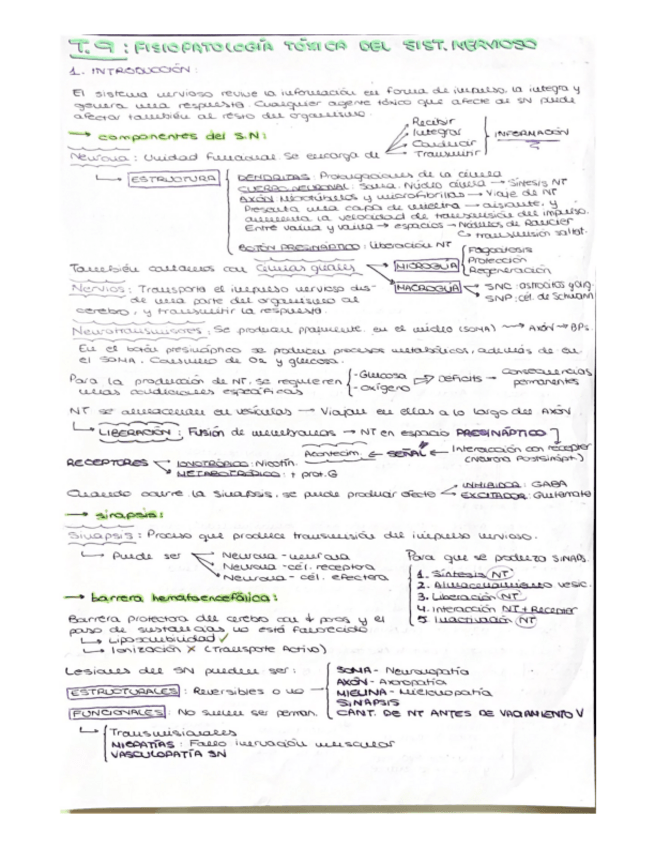 T.9: FISIOPATOLOGÍA TÓXICA DEL SIST. NERVIOSO
1. INTRODUCCIÓN:
El sistema nervioso revive la información en forma de impulso, la integra y
genera una respuesta. Cualquier agente tóxico que afecte al SN puede
afectar también al resto del organismo.
→ componentes del S.N:
Neurona: Unidad funcional se encarga de
Recibir
Integrar
Conducir
Transmitir
INFORMACIÓN
ESTRUCTURA
DENDRITAS: Prolongaciones de la célula
CUERPO NEURONAL: Soma. Núcleo célula → Síntesis NT
AXÓN: Microtúbulos y microfibrillas → Viaje de NT
Presenta una capa de mielina → aislante, y
aumenta la velocidad de transmisión del impulso.
Entre vaina y vaina → espacios → Nódulos de Ranvier
↳ transmisión saltat.
BOTÓN PRESINÁPTICO: Liberación NT
También contamos con células gliales
MICROGLÍA
Fagocitosis
Protección
Regeneración
MACROGLÍA
SNC: astrocitos y olig.
SNP: cél. de Schwann
Nervios: Transporta el impulso nervioso des-
de una parte del organismo al
cerebro, y transmitir la respuesta.
Neurotransmisores: Se producen propiamente. en el núcleo (SOMA) → AXÓN → BPs.
En el botón presináptico se producen procesos metabólicos, además de en
el SOMA. Consumo de O2 y glucosa.
Para la producción de NT, se requieren
unas condiciones específicas
- Glucosa
- Oxígeno
⇒ Déficits →
Consecuencias
permanentes
NT se almacenan en vesículas → Viajan en ellas a lo largo del AXÓN.
↳ LIBERACIÓN: Fusión de membranas → NT en espacio PRESINÁPTICO
Acontecim. ← SEÑAL ← Interacción con receptor
(Neurona Postsinápt.)
RECEPTORES
IONOTRÓPICO: Nicotín.
METABOTRÓPICO: + prot. G
Cuando ocurre la sinapsis, se puede producir efecto
INHIBIDOR: GABA
EXCITADOR: Glutamato
→ sinapsis:
Sinapsis: Proceso que produce transmisión del impulso nervioso.
↳ Puede ser
Neurona - neurona
Neurona - cél. receptora
Neurona - cél. efectora
Para que se produzca SINAPS.
1. Síntesis NT
2. Almacenamiento vesic.
3. Liberación NT
4. Interacción NT + Receptor
5. Inactivación NT
→ barrera hematoencefálica:
Barrera protectora del cerebro con ↓ poros y el
paso de sustancias no está favorecido
↳ Liposolubilidad ✓
↳ Ionización X (Transporte Activo)
Lesiones del SN pueden ser:
ESTRUCTURALES: Reversibles o no
SOMA - Neuronopatía
AXÓN - Axonopatía
MIELINA - Mielinopatía
SINAPSIS
CANT. DE NT ANTES DE VACIAMIENTO V
FUNCIONALES: No suelen ser perman.
Transmisionales
MIOPATÍAS: Fallo inervación muscular
VASCULOPATÍA SN